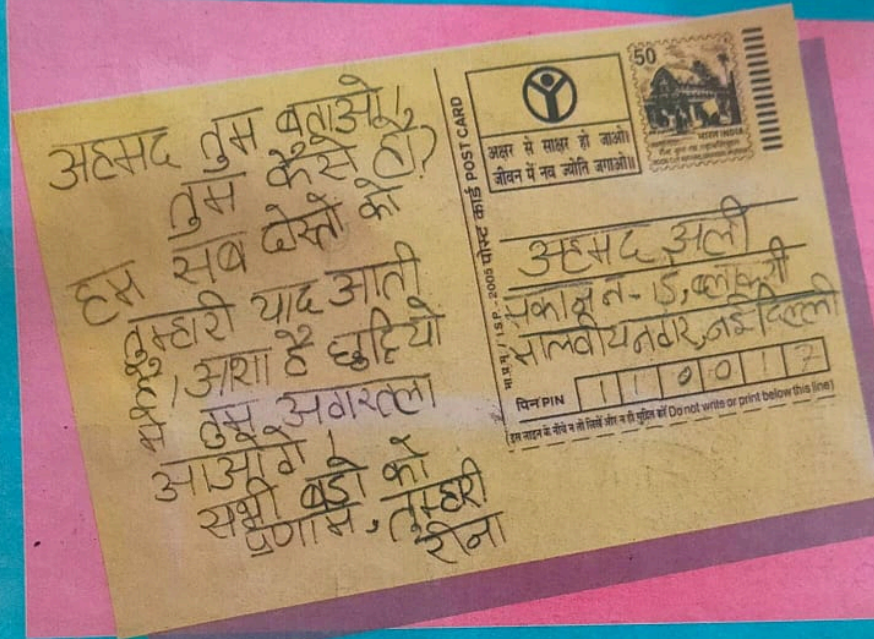 अहमद तुम बताओ!
तुम कैसे हो?
हम सब दोस्तों को
तुम्हारी याद आती
है। आशा है छुट्टियो
में तुम अगरतला
आओगे।
सभी बडो को
प्रणाम, तुम्हारी
रीना
पोस्ट कार्ड POST CARD
I.S.P.-2005
अक्षर से साक्षर हो जाओ।
जीवन में नव ज्योति जगाओ॥
50
भारत INDIA
अहमद अली
मकान न- 15, ब्लाक सी
मालवीय नगर, नई दिल्ली
पिन PIN 110017
(इस लाइन के नीचे न तो लिखें और न ही मुद्रित करें Do not write or print below this line)